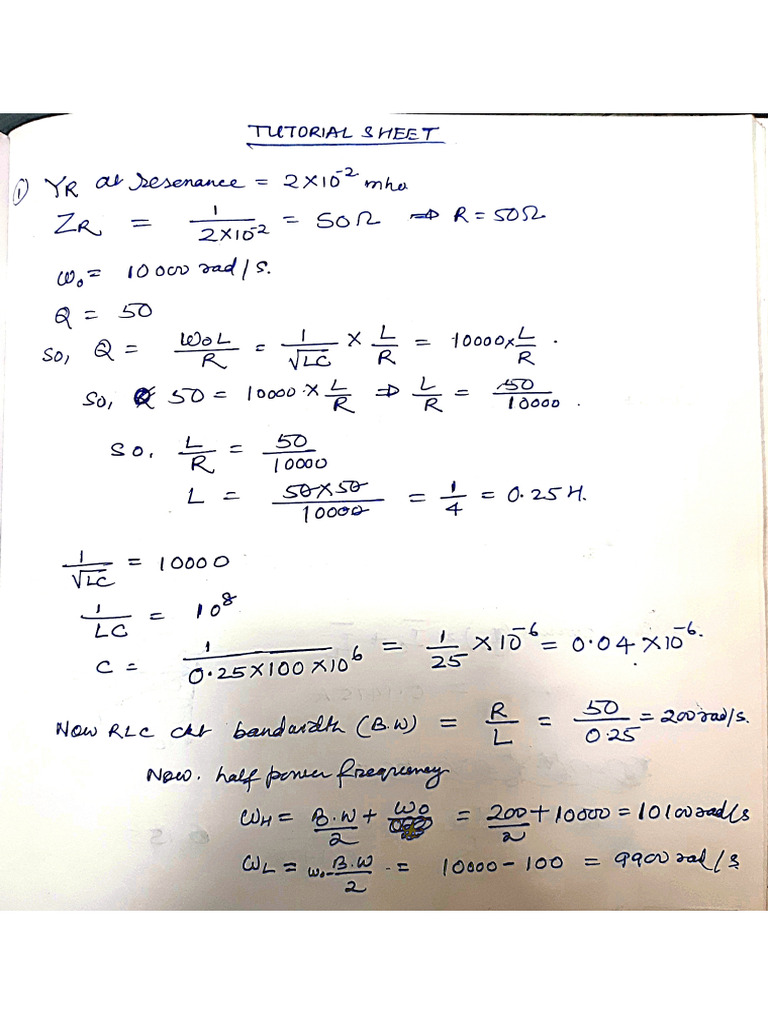 TUTORIAL SHEET
① YR at resenance = 2×10⁻² mho
ZR = 1/(2×10⁻²) = 50Ω ⇒ R = 50Ω
ω₀ = 10000 rad/s.
Q = 50
So, Q = ω₀L/R = 1/√LC × L/R = 10000 × L/R .
So, 50 = 10000 × L/R ⇒ L/R = 50/10000 .
So, L/R = 50/10000
L = 50×50/10000 = 1/4 = 0.25 H.
1/√LC = 10000
1/LC = 10⁸
C = 1/(0.25×100×10⁶) = 1/25 × 10⁻⁶ = 0.04 × 10⁻⁶.
Now RLC ckt bandwidth (B.W) = R/L = 50/0.25 = 200 rad/s.
Now. half power frequency
ωH = B.W/2 + ω₀ = 200/2 + 10000 = 10100 rad/s
ωL = ω₀ - B.W/2 . = 10000 - 100 = 9900 rad/s